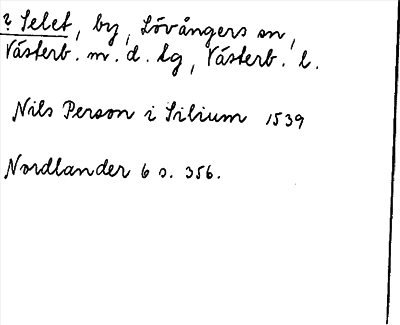 ? Selet, by, Lövångers sn,
Västerb. m. d. lg, Västerb. l.
Nils Person i Silium 1539
Nordlander 6 s. 356.